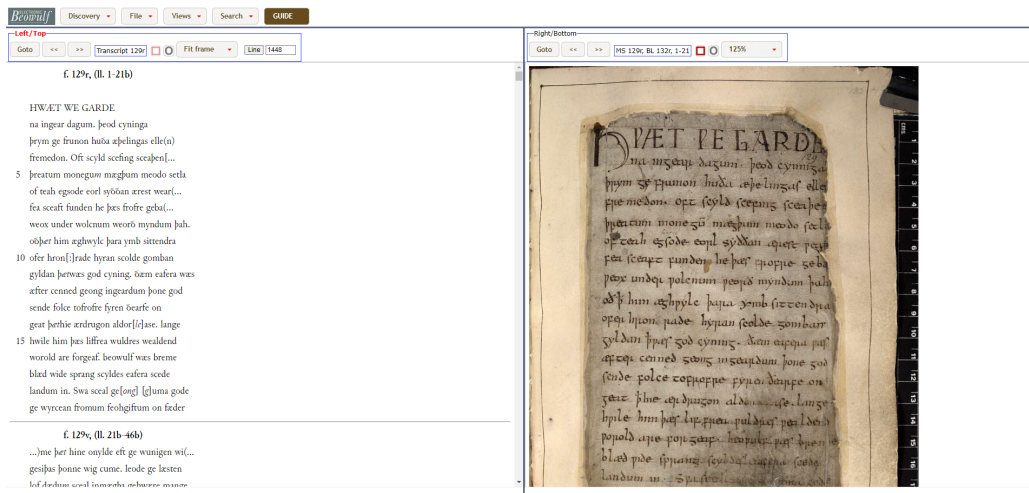 ELECTRONIC
Beowulf
Discovery
File
Views
Search
GUIDE
Left/Top
Goto
<<
>>
Transcript 129r
Fit frame
Line
1448
f. 129r, (ll. 1-21b)
HWÆT WE GARDE
na ingear dagum. þeod cyninga
þrym ge frunon huða æþelingas elle(n)
fremedon. Oft scyld scefing sceaþen[...
5 þreatum monegum mægþum meodo setla
of teah egsode eorl syððan ærest wear(...
fea sceaft funden he þæs frofre geba(...
weox under wolcnum weorð myndum þah.
oðþer him æghwylc þara ymb sittendra
10 ofer hron[:]rade hyran scolde gomban
gyldan þetwæs god cyning. ðæm eafera wæs
æfter cenned geong ingeardum þone god
sende folce tofrofre fyren ðearfe on
geat þæthie ærdrugon aldor[le]ase. lange
15 hwile him þæs liffrea wuldres wealdend
worold are forgeaf. beowulf wæs breme
blæd wide sprang scyldes eafera scede
landum in. Swa sceal ge[ong] [g]uma gode
ge wyrcean fromum feohgiftum on fæder
f. 129v, (ll. 21b-46b)
...)me þer hine onylde eft ge wunigen wi(...
gesiþas þonne wig cume. leode ge læsten
lof dædum sceal inmægþa gehwære mange
Right/Bottom
Goto
<<
>>
MS 129r, BL 132r, 1-21
125%
HÞÆT ǷE GARDE
na ingear dagum. þeod cyninga
þrym ge frunon huða æþelingas elle
fremedon. oft scyld scefing sceaþe
þreatum monegū mægþum meodo setla
of teah egsode eorl syððan ærest
fea sceaft funden he þæs frofre geba
ƿeox under ƿolcnum ƿeorð myndum þah
oð þ him æghƿylc þara ymb sittendra
ofer hron rade hyran scolde gomban
gyldan þ ƿæs god cyning. ðæm eafera ƿæs
æfter cenned geong in geardum þone god
sende folce tofrofre fyren ðearfe on
geat þ hie ær drugon aldor ase. lange
hƿile him þæs lif frea ƿuldres ƿealdend
ƿorold are forgeaf. beoƿulf ƿæs breme
blæd ƿide sprang scyldes eafera scede
landum in.
cms
1
2
3
4
5
6
7
8
9
10
11
12
13
14
15
16